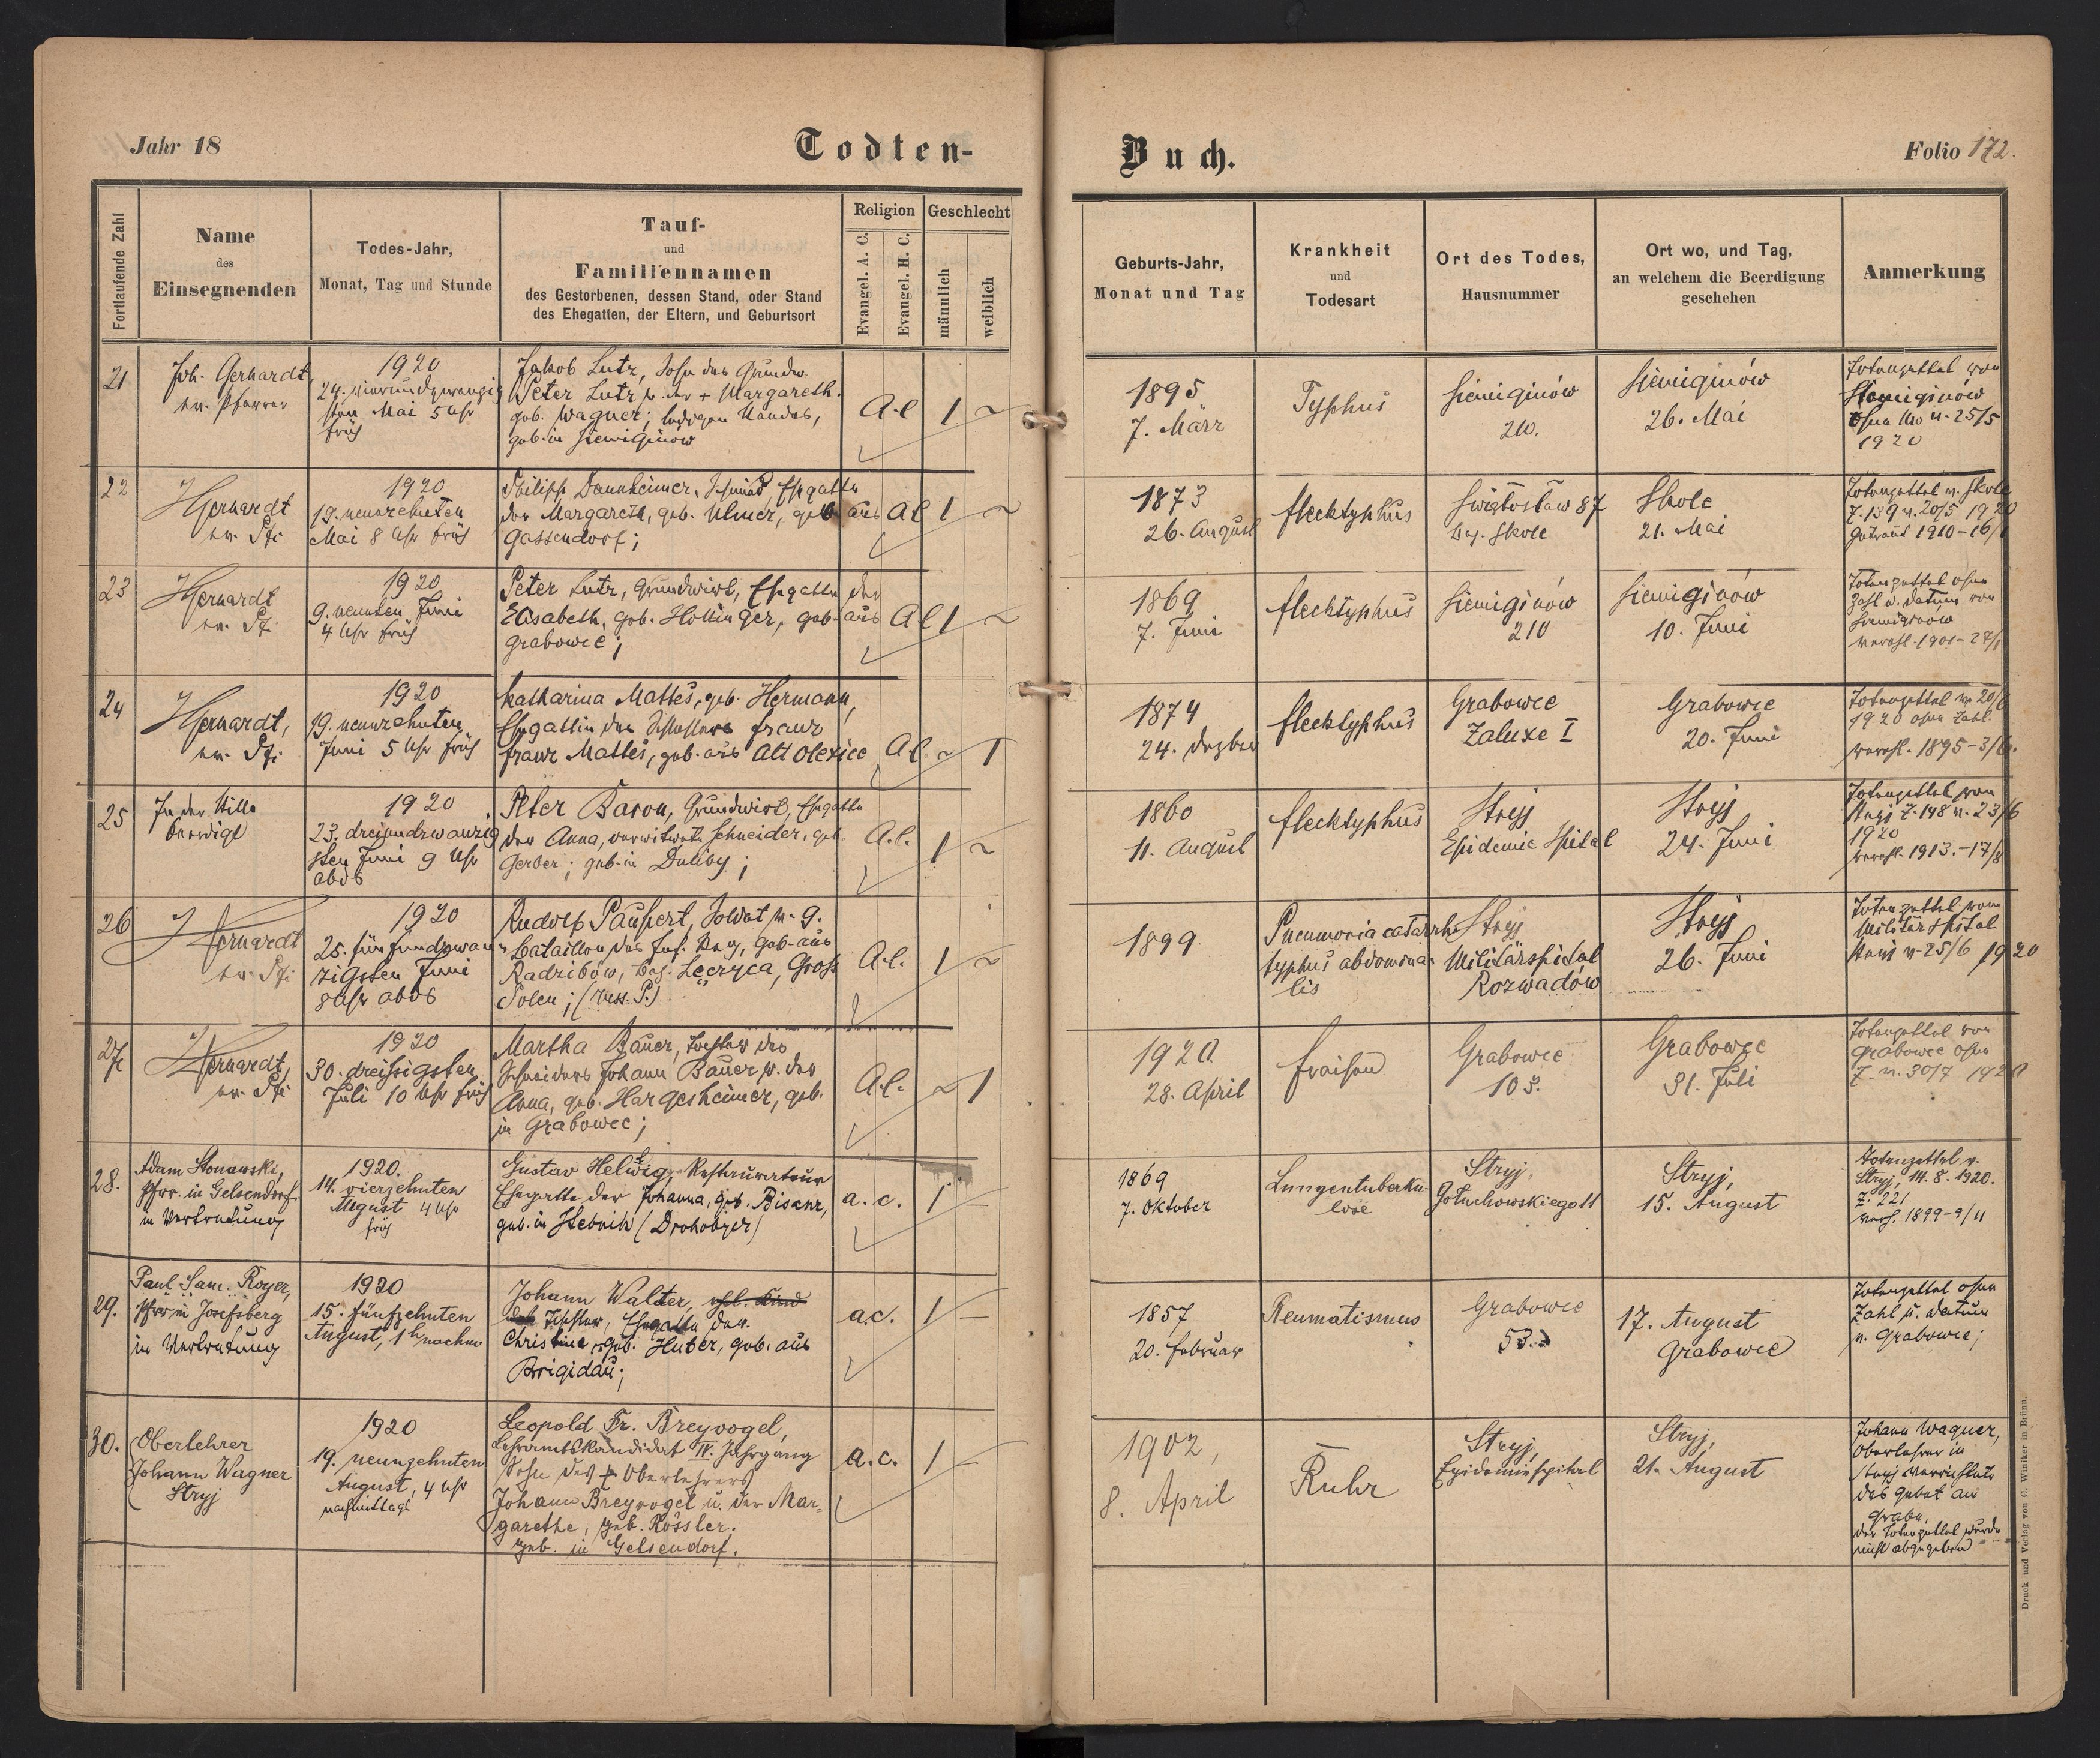 Jahr 18
Todten-
Buch.
Folio 172.
Fortlaufende Zahl
Name
des
Einsegnenden
Todes-Jahr,
Monat, Tag und Stunde
Tauf-
und
Familiennamen
des Gestorbenen, dessen Stand, oder Stand
des Ehegatten, der Eltern, und Geburtsort
Religion
Evangel. A. C.
Evangel. H. C.
Geschlecht
männlich
weiblich
Geburts-Jahr,
Monat und Tag
Krankheit
und
Todesart
Ort des Todes,
Hausnummer
Ort wo, und Tag,
an welchem die Beerdigung
geschehen
Anmerkung
21
Joh. Gerhardt,
ev. Pfarrer
1920
24. vierundzwanzig
sten Mai 5 Uhr
früh
Jakob Lutz, Sohn des Grundw.
Peter Lutz u. der + Margareth.
geb. Wagner; ledigen Standes,
geb. in Siemiginow
A.C
1 ~
1895
7. März
Typhus
Siemiginów
210.
Siemiginów
26. Mai
Totenzettel von
Siemiginów
ohne No v. 25/5
1920
22
JGerhardt
ev. Pfr
1920
19. neunzehnten
Mai 8 Uhr früh
Philipp Dannheimer, Schmied, Ehegatte
der Margareth, geb. Ulmer, geb. aus
Gassendorf;
A C
1 ~
1873
26. August
Flecktyphus
Świętosław 87
Bez. Skole
Skole
21. Mai
Totenzettel v. Skole
Z. 139 v. 20/5 1920
Getraut 1910-16/1
23
JGerhardt
ev. Pf.
1920
9. neunten Juni
4 Uhr früh
Peter Lutz, Grundwirt, Ehegatte der
Elisabeth, geb. Hollinger, geb. aus
Grabowce;
A C
1 ~
1869
7. Juni
Flecktyphus
Siemiginów
210
Siemiginów
10. Juni
Totenzettel ohne
Zahl u. Datum von
Siemiginow
verehl. 1901-27/1
24
JGerhardt,
ev. Pfr
1920
19. neunzehnten
Juni 5 Uhr früh
Katharina Mattes, geb. Hermann,
Ehegattin des Schlossers Franz
Franz Mattes, geb. aus Alt Olexice
A.C.
~ 1
1874
24. Dezber
Flecktyphus
Grabowce
Zaluxe I
Grabowce
20. Juni
Totenzettel v. 20/6
1920 ohne Zahl.
verehl. 1895-3/6.
25
In der Stille
beerdigt
1920
23. dreiundzwanzig
sten Juni 9 Uhr
abds
Peter Baron, Grundwirt, Ehegatte
der Anna, verwitwete Schneider, geb.
Gerber; geb. in Duliby;
A.C.
1 ~
1860
11. August
Flecktyphus
Stryj
Epidemie Spital
Stryj
24. Juni
Totenzettel von
Stryj Z. 148 v. 23/6
1920
verehl. 1913.-17/8
26
JGerhardt
ev. Pfr.
1920
25. fünfundzwan
zigsten Juni
8 Uhr abds
Rudolf Paupert, Soldat v. 9.
Bataillon des Inf. Reg, geb. aus
Radzibów, Bez. Lęczyca, Gross
Polen; (Russ. P.)
A.C.
1 ~
1899
Pneumonia catarrh.
typhus abdomina
lis
Stryj
Militärspital
Rozwadów
Stryj
26. Juni
Totenzettel vom
Militär Spital
Stryj v. 25/6 1920
27
JGerhardt,
ev. Pfr
1920
30. dreissigsten
Juli 10 Uhr früh
Martha Bauer, Tochter des
Schneiders Johann Bauer u. der
Anna, geb. Hargesheimer, geb.
in Grabowce;
A.C.
~ 1
1920.
28. April
Fraisen
Grabowce
103.
Grabowce
31. Juli
Totenzettel von
Grabowce ohne
Z. v. 30/7 1920
28.
Adam Stonawski,
Pfrr. in Gelsendorf
in Vertretung
1920.
14. vierzehnten
August 4 Uhr
früh
Gustav Helwig, Restaurateur
Ehegatte der Johanna, geb. Bisanz,
geb. in Stebnik (Drohobycz)
a. c.
1 –
1869
7. Oktober
Lungentuberku-
lose
Stryj,
Gołuchowskiego 11
Stryj,
15. August
Totenzettel v.
Stryj, 14. 8. 1920.
Z. 221
verh. 1899-9/11
29.
Paul Sam. Royer,
Pfrr. in Josefsberg
in Vertretung
1920
15. fünfzehnten
August, 1 h nachm
Johann Walter,
Tischler, Ehegatte der
Christina, geb. Huber, geb. aus
Brigidau;
a.c.
1 –
1857
20. Februar
Reumatismus
Grabowce
53.
17. August
Grabowce
Totenzettel ohne
Zahl u. Datum
v. Grabowce;
30.
Oberlehrer
Johann Wagner
Stryj
1920
19. neunzehnten
August, 4 Uhr
nachmittags
Leopold Fr. Breyvogel,
Lehramtskandidat IV. Jahrgang
Sohn des + Oberlehrers
Johann Breyvogel u. der Mar-
garethe, geb. Rössler;
geb. in Gelsendorf.
a.c.
1
1902,
8. April
Ruhr
Stryj,
Epidemiespital
Stryj,
21. August
Johann Wagner,
Oberlehrer in
Stryj verrichtete
das Gebet am
Grabe.
der Totenzettel wurde
nicht abgegeben
Druck und Verlag von C. Winiker in Brünn.